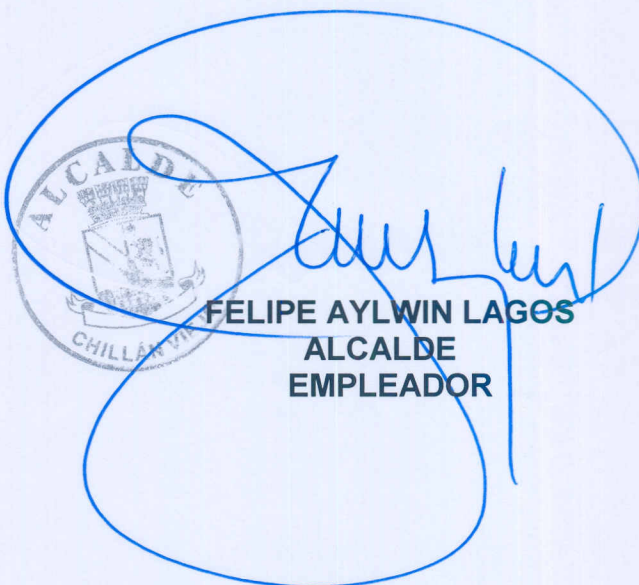 ALCALDE
CHILLÁN VIEJO
FELIPE AYLWIN LAGOS
ALCALDE
EMPLEADOR